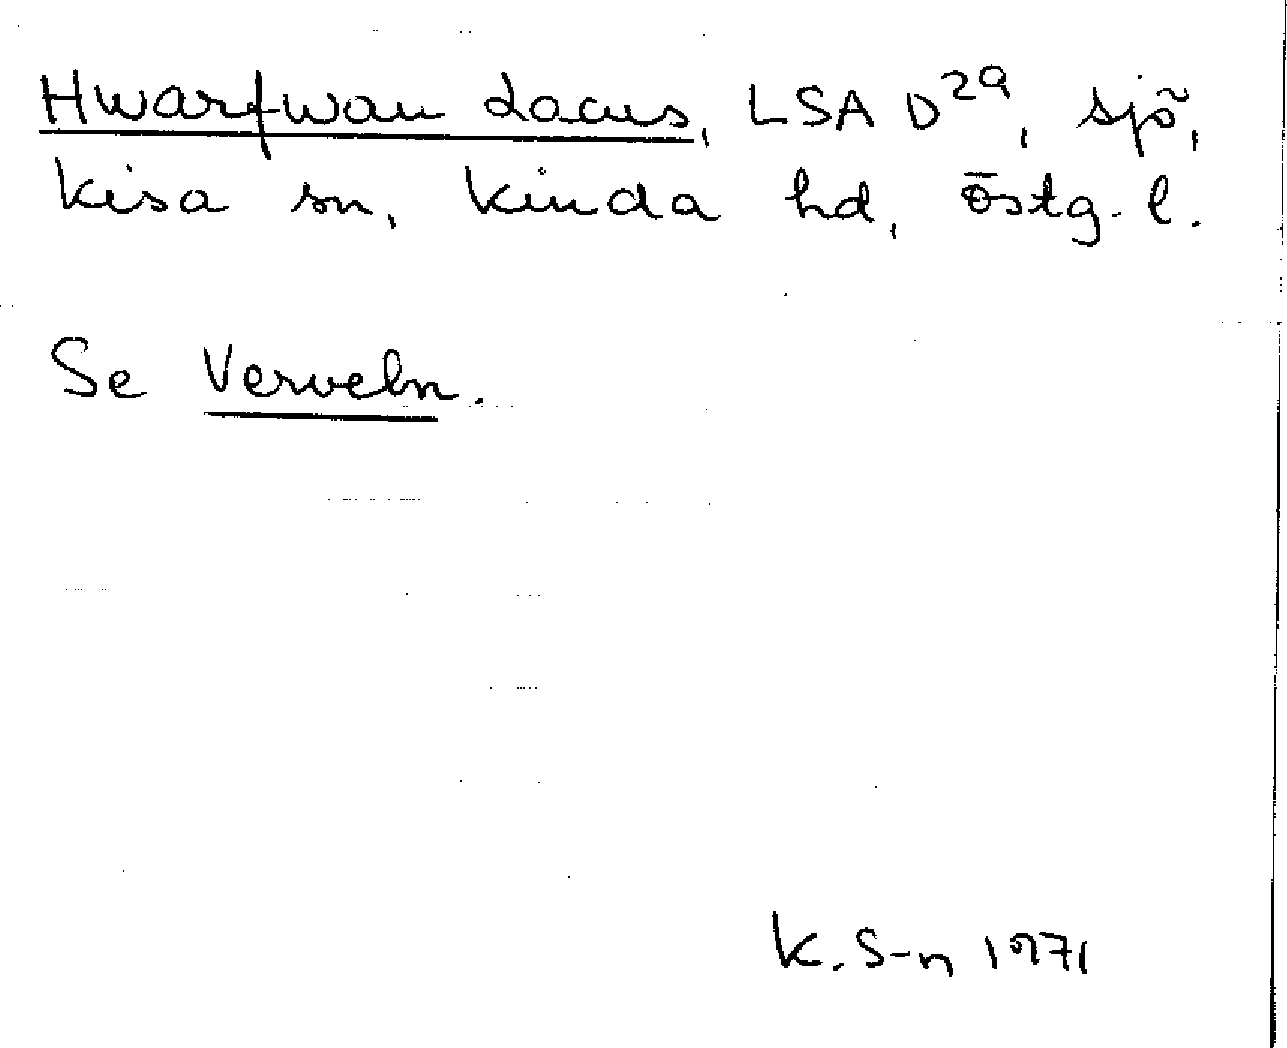 Hwarfwan Lacus, LSA D²⁹, sjö,
Kisa sn, Kinda hd, Östg. l.
Se Verveln.
K. S-n 1971